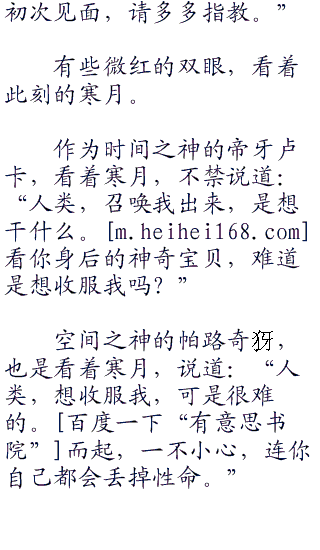 初次见面，请多多指教。”
有些微红的双眼，看着
此刻的寒月。
作为时间之神的帝牙卢
卡，看着寒月，不禁说道：
“人类，召唤我出来，是想
干什么。[m.heihei168.com]
看你身后的神奇宝贝，难道
是想收服我吗？”
空间之神的帕路奇犽，
也是看着寒月，说道：“人
类，想收服我，可是很难
的。[百度一下“有意思书
院”]而起，一不小心，连你
自己都会丢掉性命。”